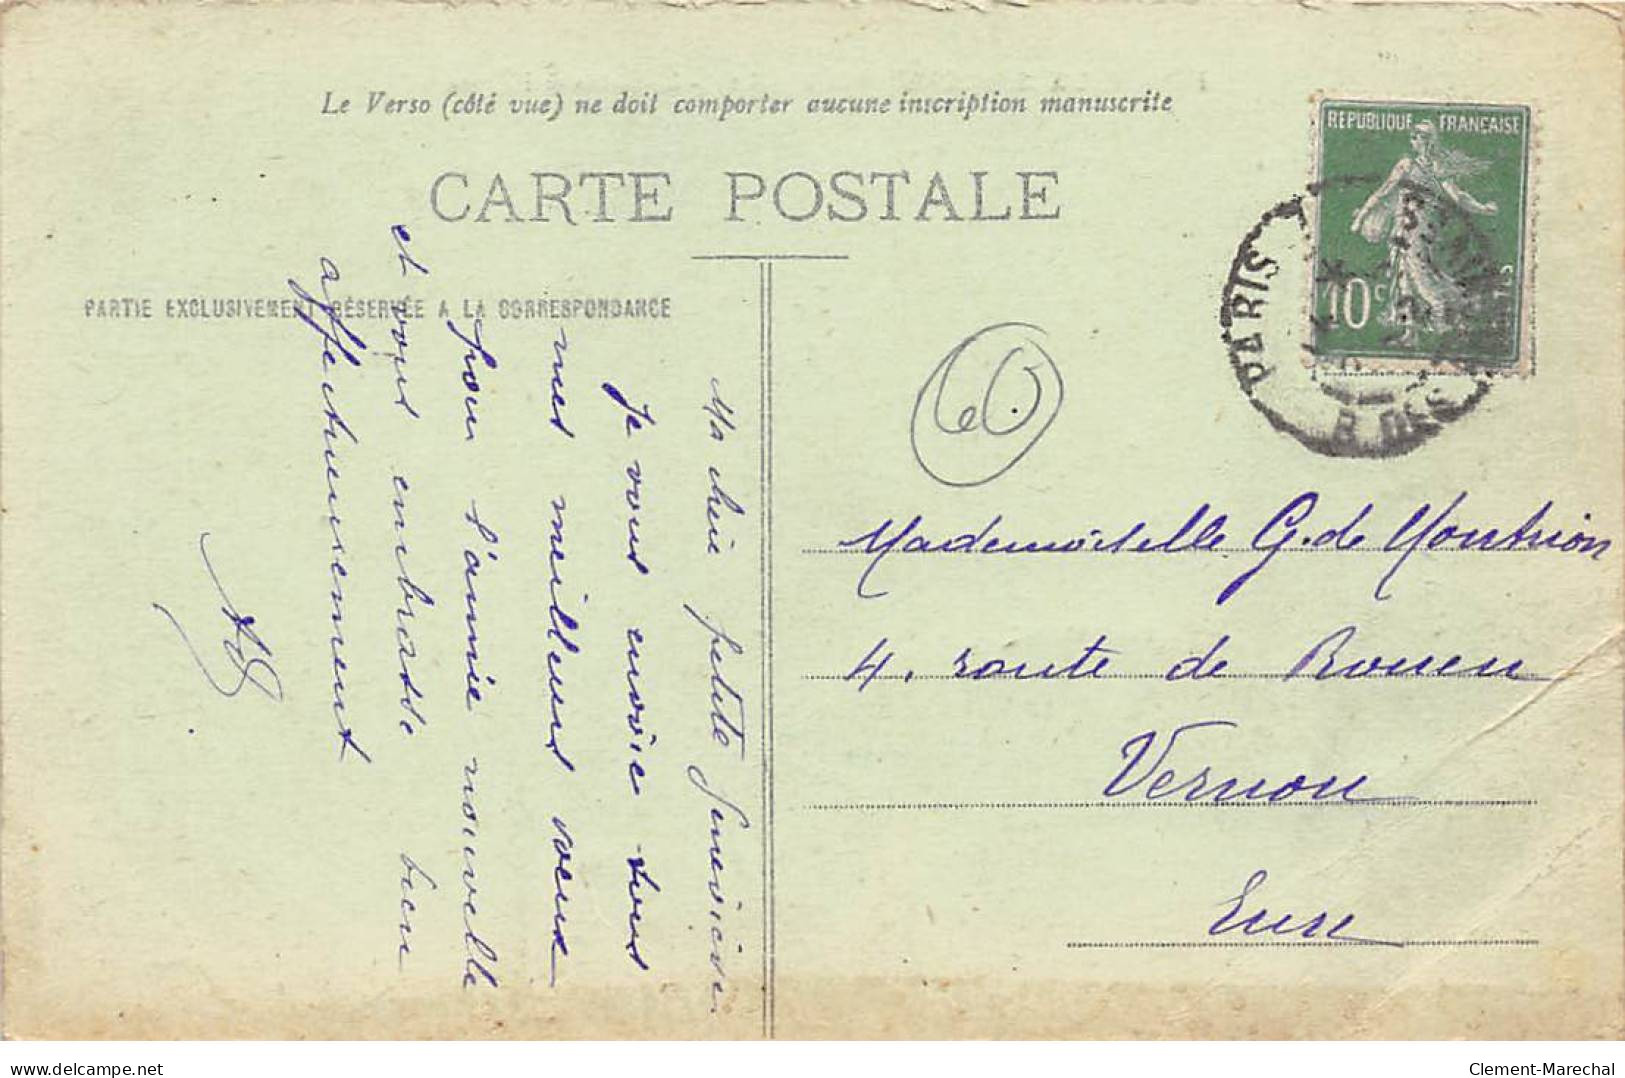 Le Verso (côté vue) ne doit comporter aucune inscription manuscrite
CARTE POSTALE
PARTIE EXCLUSIVEMENT RÉSERVÉE A LA CORRESPONDANCE
REPUBLIQUE FRANÇAISE
10c
PARIS
R. DES
60
Ma chère petite Geneviève
Je vous envoie tous
mes meilleurs voeux
pour l'année nouvelle
et vous embrasse bien
affectueusement
Mademoiselle G. de Montrion
4, route de Rouen
Vernon
Eure
delcampe.net
Clement-Marechal